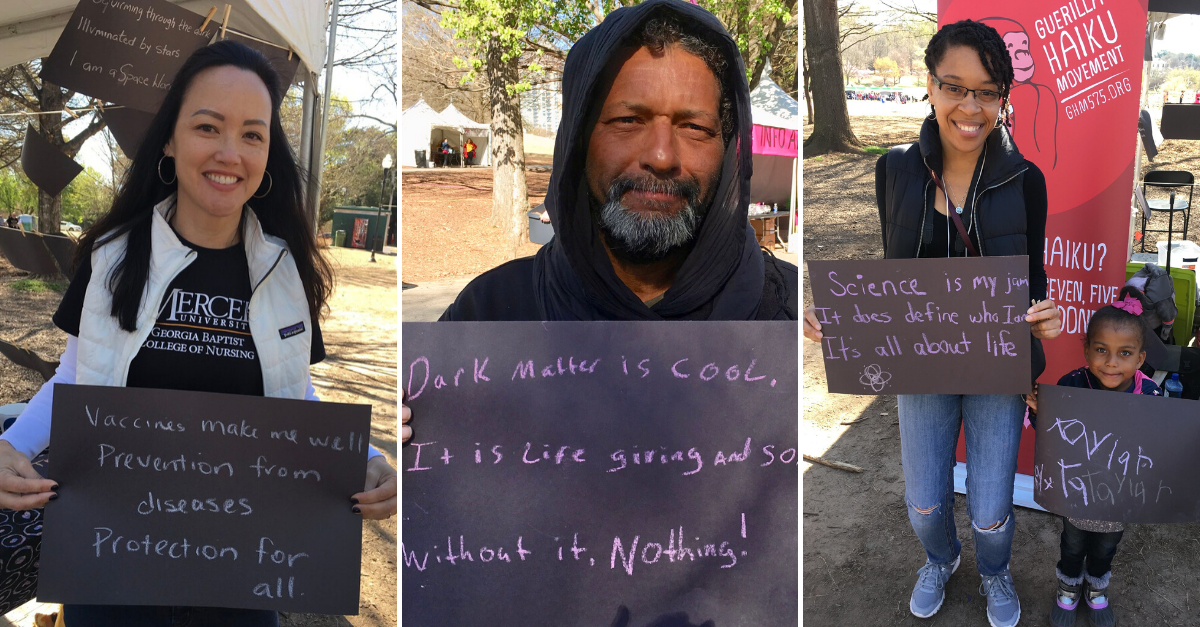 Squirming through the dark
Illuminated by stars
I am a Space Worm
MERCER
UNIVERSITY
GEORGIA BAPTIST
COLLEGE OF NURSING
patagonia
Vaccines make me well
Prevention from
diseases
Protection for
all.
INFO
Dark Matter is COOL.
It is Life giving AND SO.
Without it, Nothing!
GUERILLA
HAIKU
MOVEMENT
GHM575.ORG
HAIKU?
EVEN, FIVE
DONE
Science is my jam
It does define who I am
It's all about life
Taylah
Ta Taylah